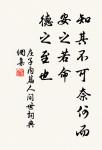 知其不可奈何而
安之若命
德之至也
庄子內篇人间世詞典
網集